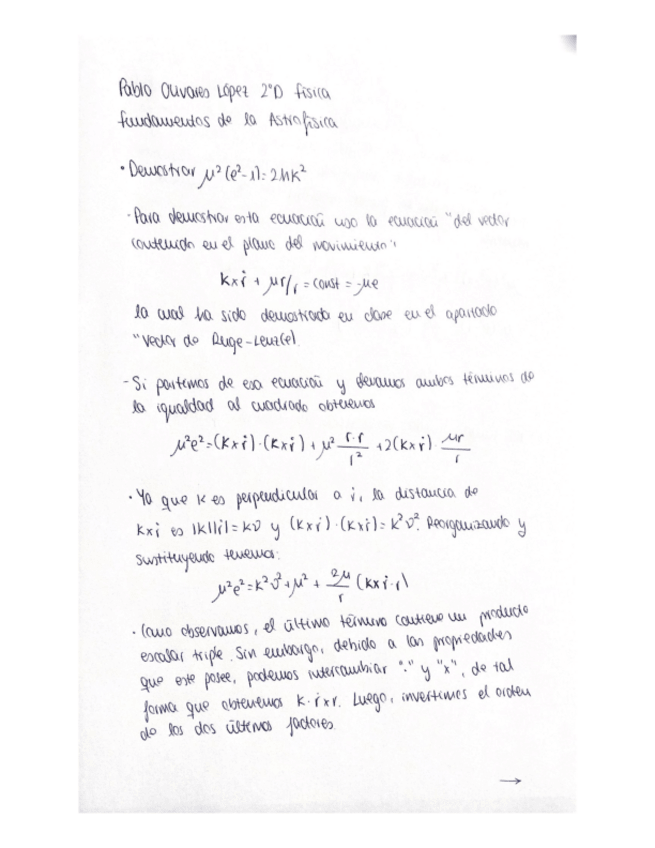 Pablo Olivares López 2ºD Física
Fundamentos de la Astrofísica
• Demostrar μ²(e²-1)=2hk²
· Para demostrar esta ecuación uso la ecuación "del vector
contenido en el plano del movimiento"
k×ṙ + μr/r = const = -μe
la cual ha sido demostrada en clase en el apartado
"Vector de Runge-Lenz(e).
- Si partimos de esa ecuación y elevamos ambos términos de
la igualdad al cuadrado obtenemos
μ²e²=(k×ṙ)·(k×ṙ)+μ² r·r/r² +2(k×ṙ)· μr/r
· Ya que k es perpendicular a ṙ, la distancia de
k×ṙ es |k||ṙ|=kv y (k×ṙ)·(k×ṙ)=k²v². Reorganizando y
sustituyendo tenemos:
μ²e²=k²v²+μ²+ 2μ/r (k×ṙ·r)
· Como observamos, el último término contiene un producto
escalar triple. Sin embargo, debido a las propiedades
que este posee, podemos intercambiar "·" y "×", de tal
forma que obtenemos k·ṙ×r. Luego, invertimos el orden
de los dos últimos factores.
→